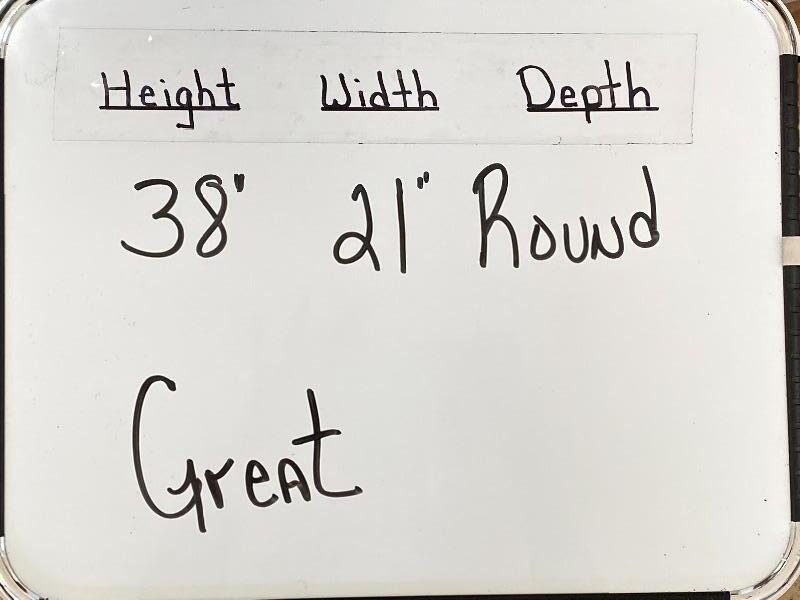 Height Width Depth
38" 21" Round
Great